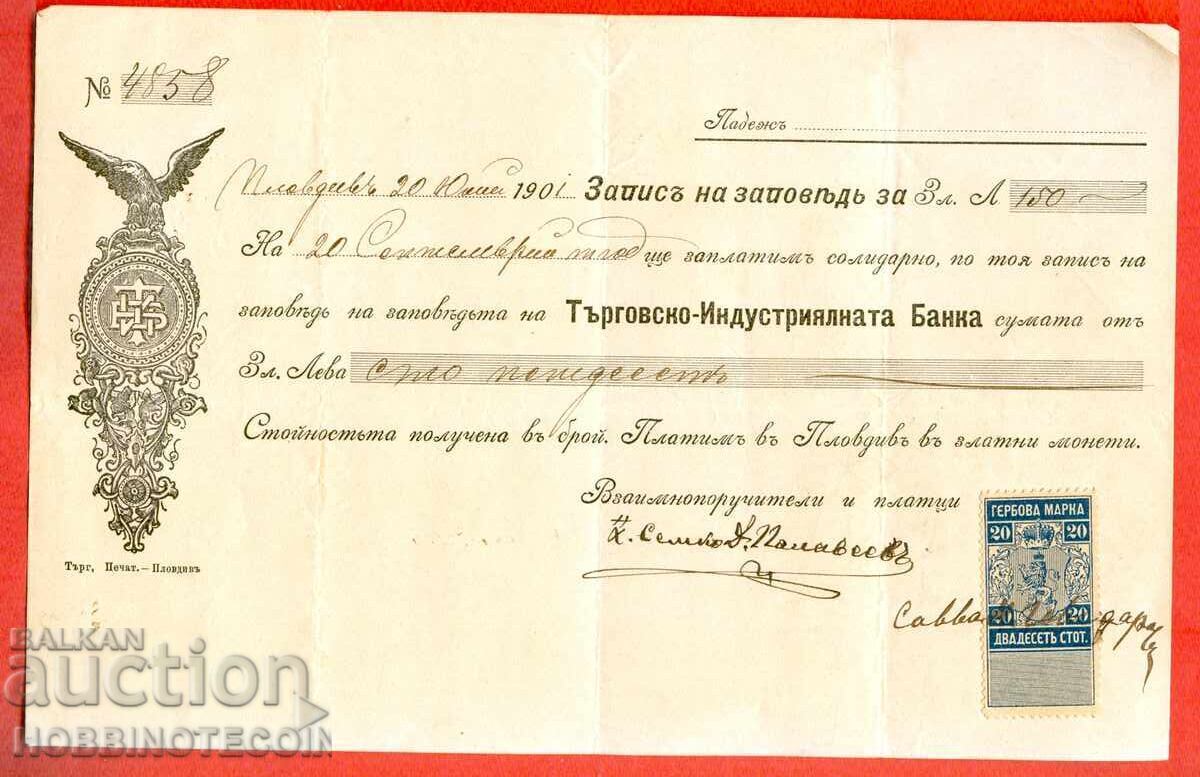 № 4858
Падежъ
Пловдивъ 20 Юлий 1901 Записъ на заповѣдь за Зл. Л 150
На 20 Септемврий т год ще заплатимъ солидарно, по тоя записъ на
заповѣдь на заповѣдьта на Търговско-Индустриялната Банка сумата отъ
Зл. Лева сто петдесетъ
Стойностьта получена въ брой. Платимъ въ Пловдивъ въ златни монети.
Взаимнопоручители и платци
Х. Семко Д. Палавеевъ
ГЕРБОВА МАРКА
20 20
Савва
20 20
ДВАДЕСЕТЬ СТОТ.
Търг, Печат.— Пловдивъ
BALKAN
auction
HOBBINOTECOIN